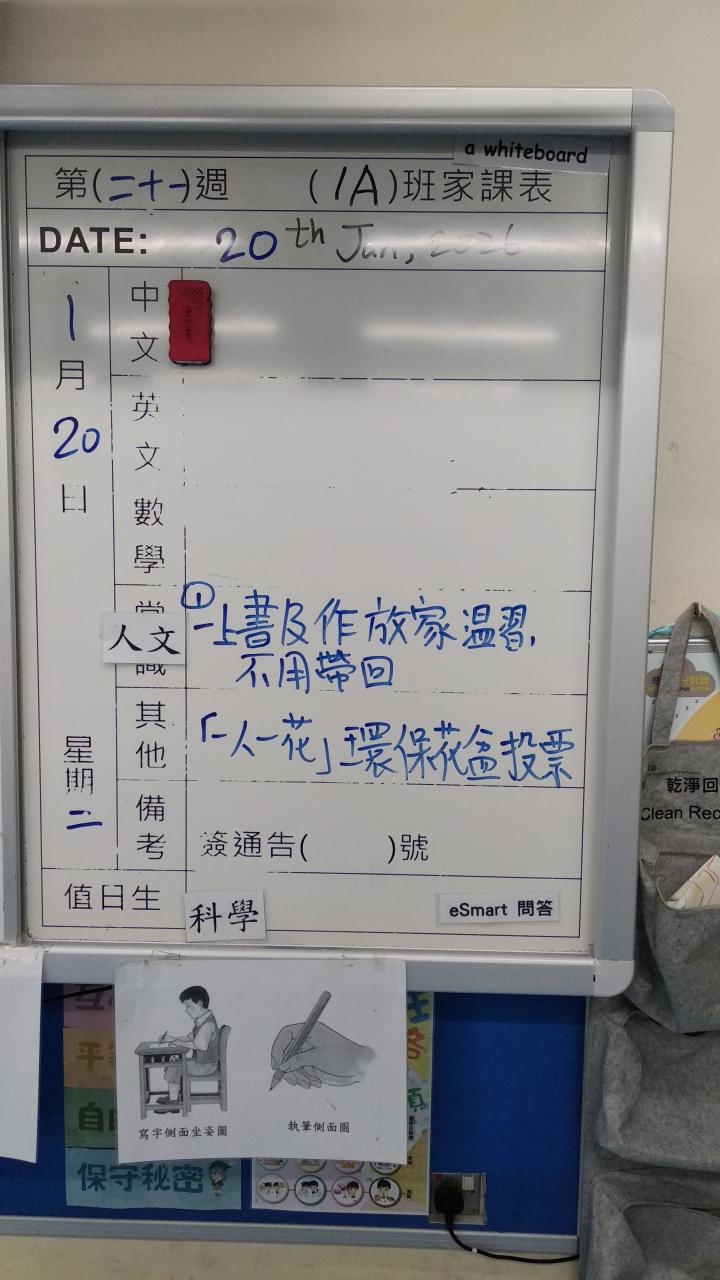 a whiteboard
第(二十一)週 (1A)班家課表
DATE: 20th Jan, 2026
1月20日
星期二
中文
英文
數學
常識
人文
①一上書及作放家溫習,
不用帶回
其他
「一人一花」環保花盆投票
備考
簽通告( )號
值日生
科學
eSmart 問答
寫字側面坐姿圖
執筆側面圖
保守秘密
乾淨回
Clean Rec